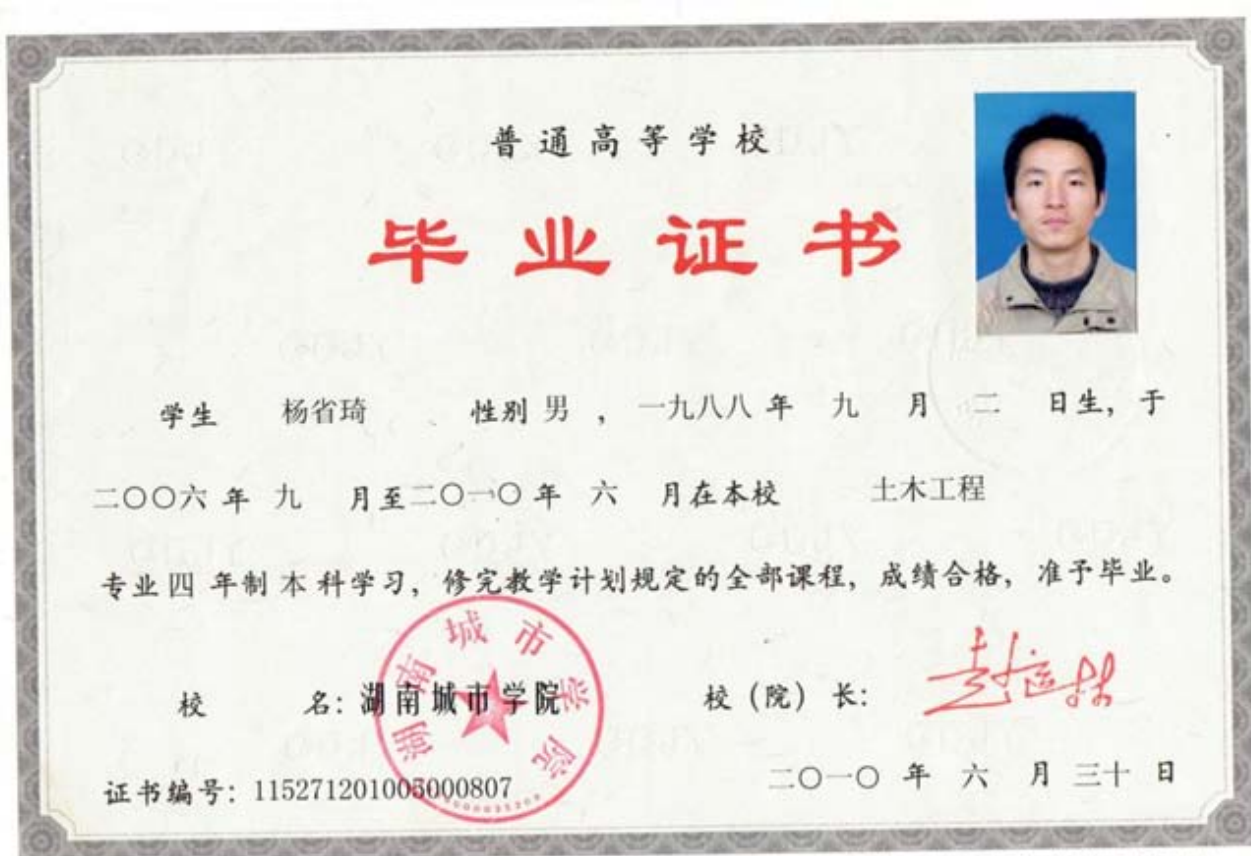 普通高等学校
毕业证书
学生 杨省琦 性别 男 ， 一九八八 年 九 月 二 日生，于
二〇〇六 年 九 月至二〇一〇 年 六 月在本校 土木工程
专业 四 年制 本 科学习，修完教学计划规定的全部课程，成绩合格，准予毕业。
校 名：湖南城市学院
校（院）长：赵运林
湖南城市学院
证书编号：115271201005000807
二〇一〇 年 六 月 三十 日